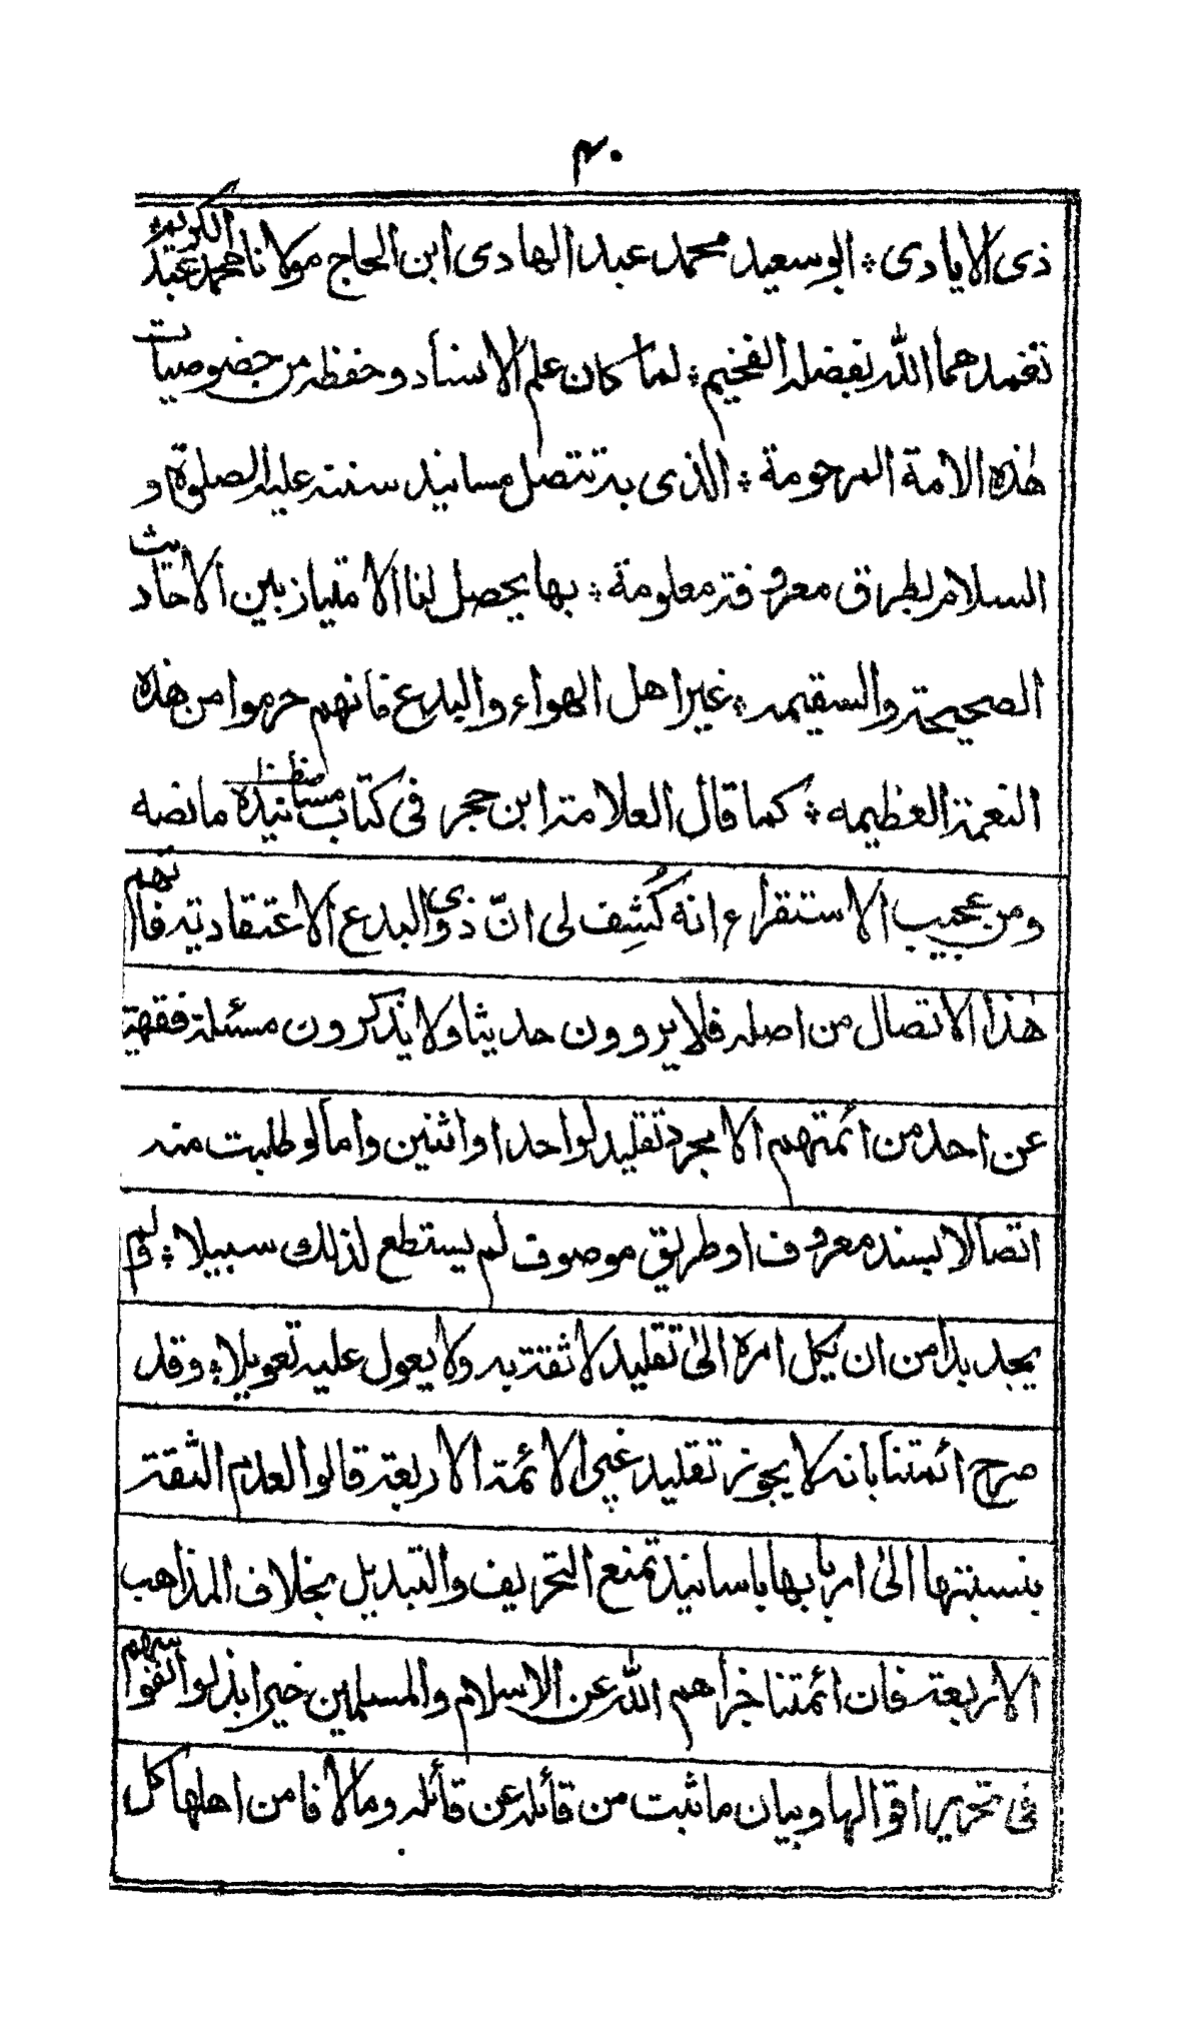 ۴۰
ذى الايادى ؞ ابو سعيد محمد عبد الهادى ابن الحاج مولانا محمد عبد الكريم
تغمدهما الله بفضله الفخيم ؞ لما كان علم الاسناد وحفظه من خصوصيات
هٰذه الامة المرحومة ؞ الذى به تتصل مسانيد سنته عليه الصلوة و
السلام لطرق معروفة معلومة ؞ بها يحصل لنا الامتياز بين الاحاديث
الصحيحة والسقيمه ؞ غير اهل الهواء والبدع فانهم حرموا من هذه
النعمة العظيمه ؞ كما قال العلامة ابن حجر فى كتاب مسانيده ما نصه
ومن عجيب الاستقراء انه كُشِف لى انّ ذوى البدع الاعتقادية فاتهم
هٰذا الاتصال من اصله فلا يروون حديثا ولا يذكرون مسئلة فقهية
عن احد من ائمتهم الا مجرد تقليد لواحد او اثنين واما لو طلبت منه
اتصالا بسند معروف او طريق موصوف لم يستطع لذلك سبيلا ؞ ولم
يجد بدا من ان يكل امره الىٰ تقليد لا ثقة به ولا يعول عليه تعويلا ؞ وقد
صرح ائمتنا بانه لا يجوز تقليد غير الائمة الاربعة قالوا لعدم الثقة
بنسبتها الىٰ اربابها باسانيد تمنع التحريف والتبديل بخلاف المذاهب
الاربعة فان ائمتنا جزاهم الله عن الاسلام والمسلمين خيرا بذلوا نفوسهم
فى تحرير اقوالها وبيان ما ثبت من قائله عن قائله وما لا فامن اهلها كل